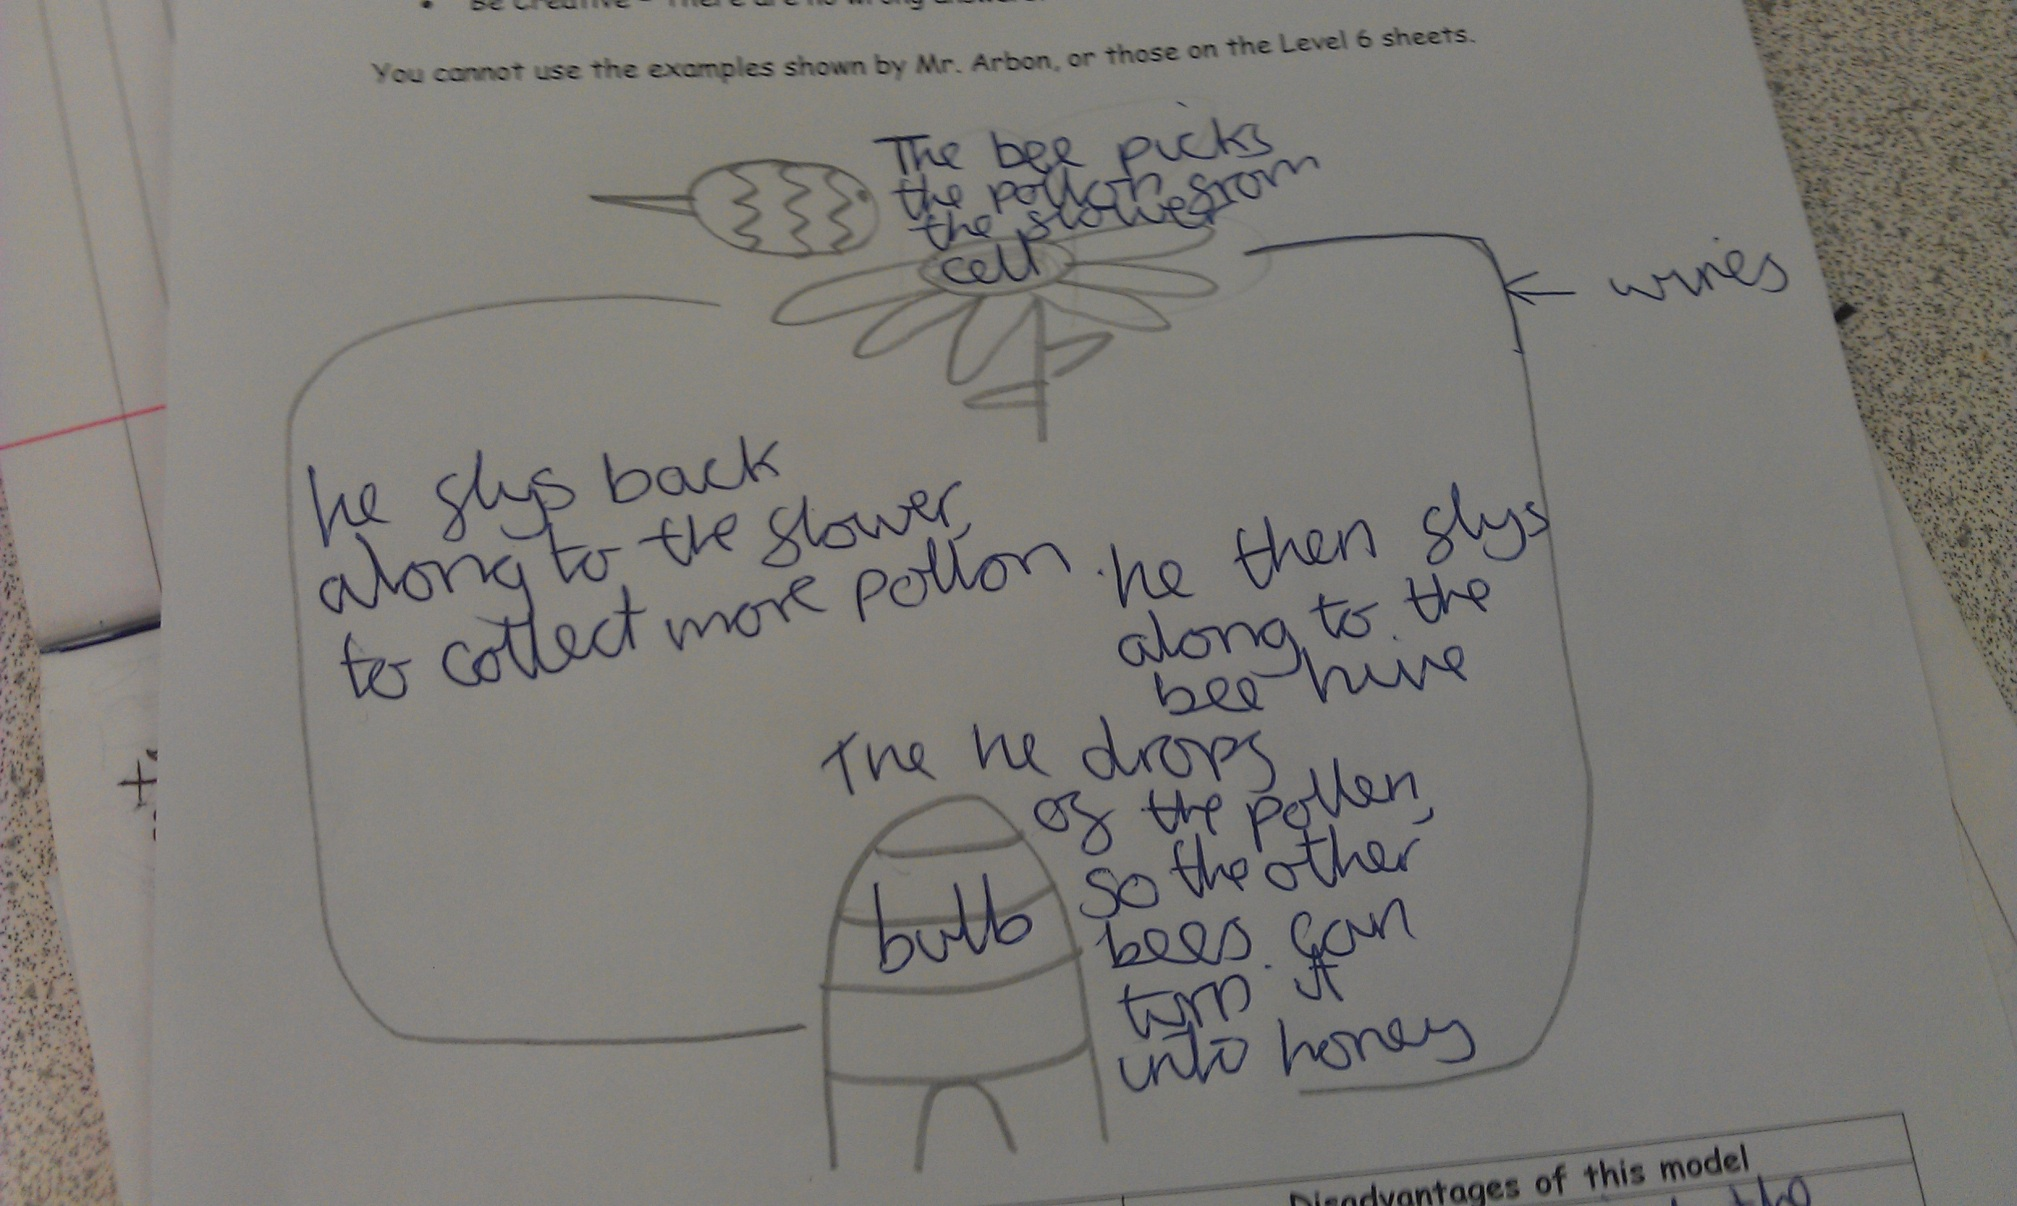 Be Creative - There are no wrong answers.
You cannot use the examples shown by Mr. Arbon, or those on the Level 6 sheets.
The bee picks
the pollon from
the flower
cell
wires
he flys back
along to the flower
to collect more pollon.
he then flys
along to the
bee hive
The he drops
of the pollen,
so the other
bees can
turn it
into honey
bulb
Disadvantages of this model
the